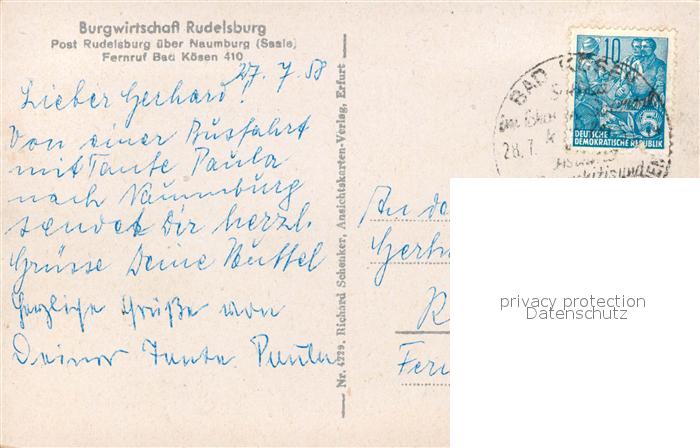 Burgwirtschaft Rudelsburg
Post Rudelsburg über Naumburg (Saale)
Fernruf Bad Kösen 410
27. 7. 58
Lieber Gerhard!
Von einer Busfahrt
mit Tante Paula
nach Naumburg
sendet Dir herzl.
Grüsse Deine Muttel
Herzliche Grüße von
Deiner Tante Paula
Nr. 4229. Richard Schenker, Ansichtskarten-Verlag, Erfurt
10
DEUTSCHE
DEMOKRATISCHE REPUBLIK
5
BAD KÖSEN
28.7.
An
Gerh
R
Fer
privacy protection
Datenschutz